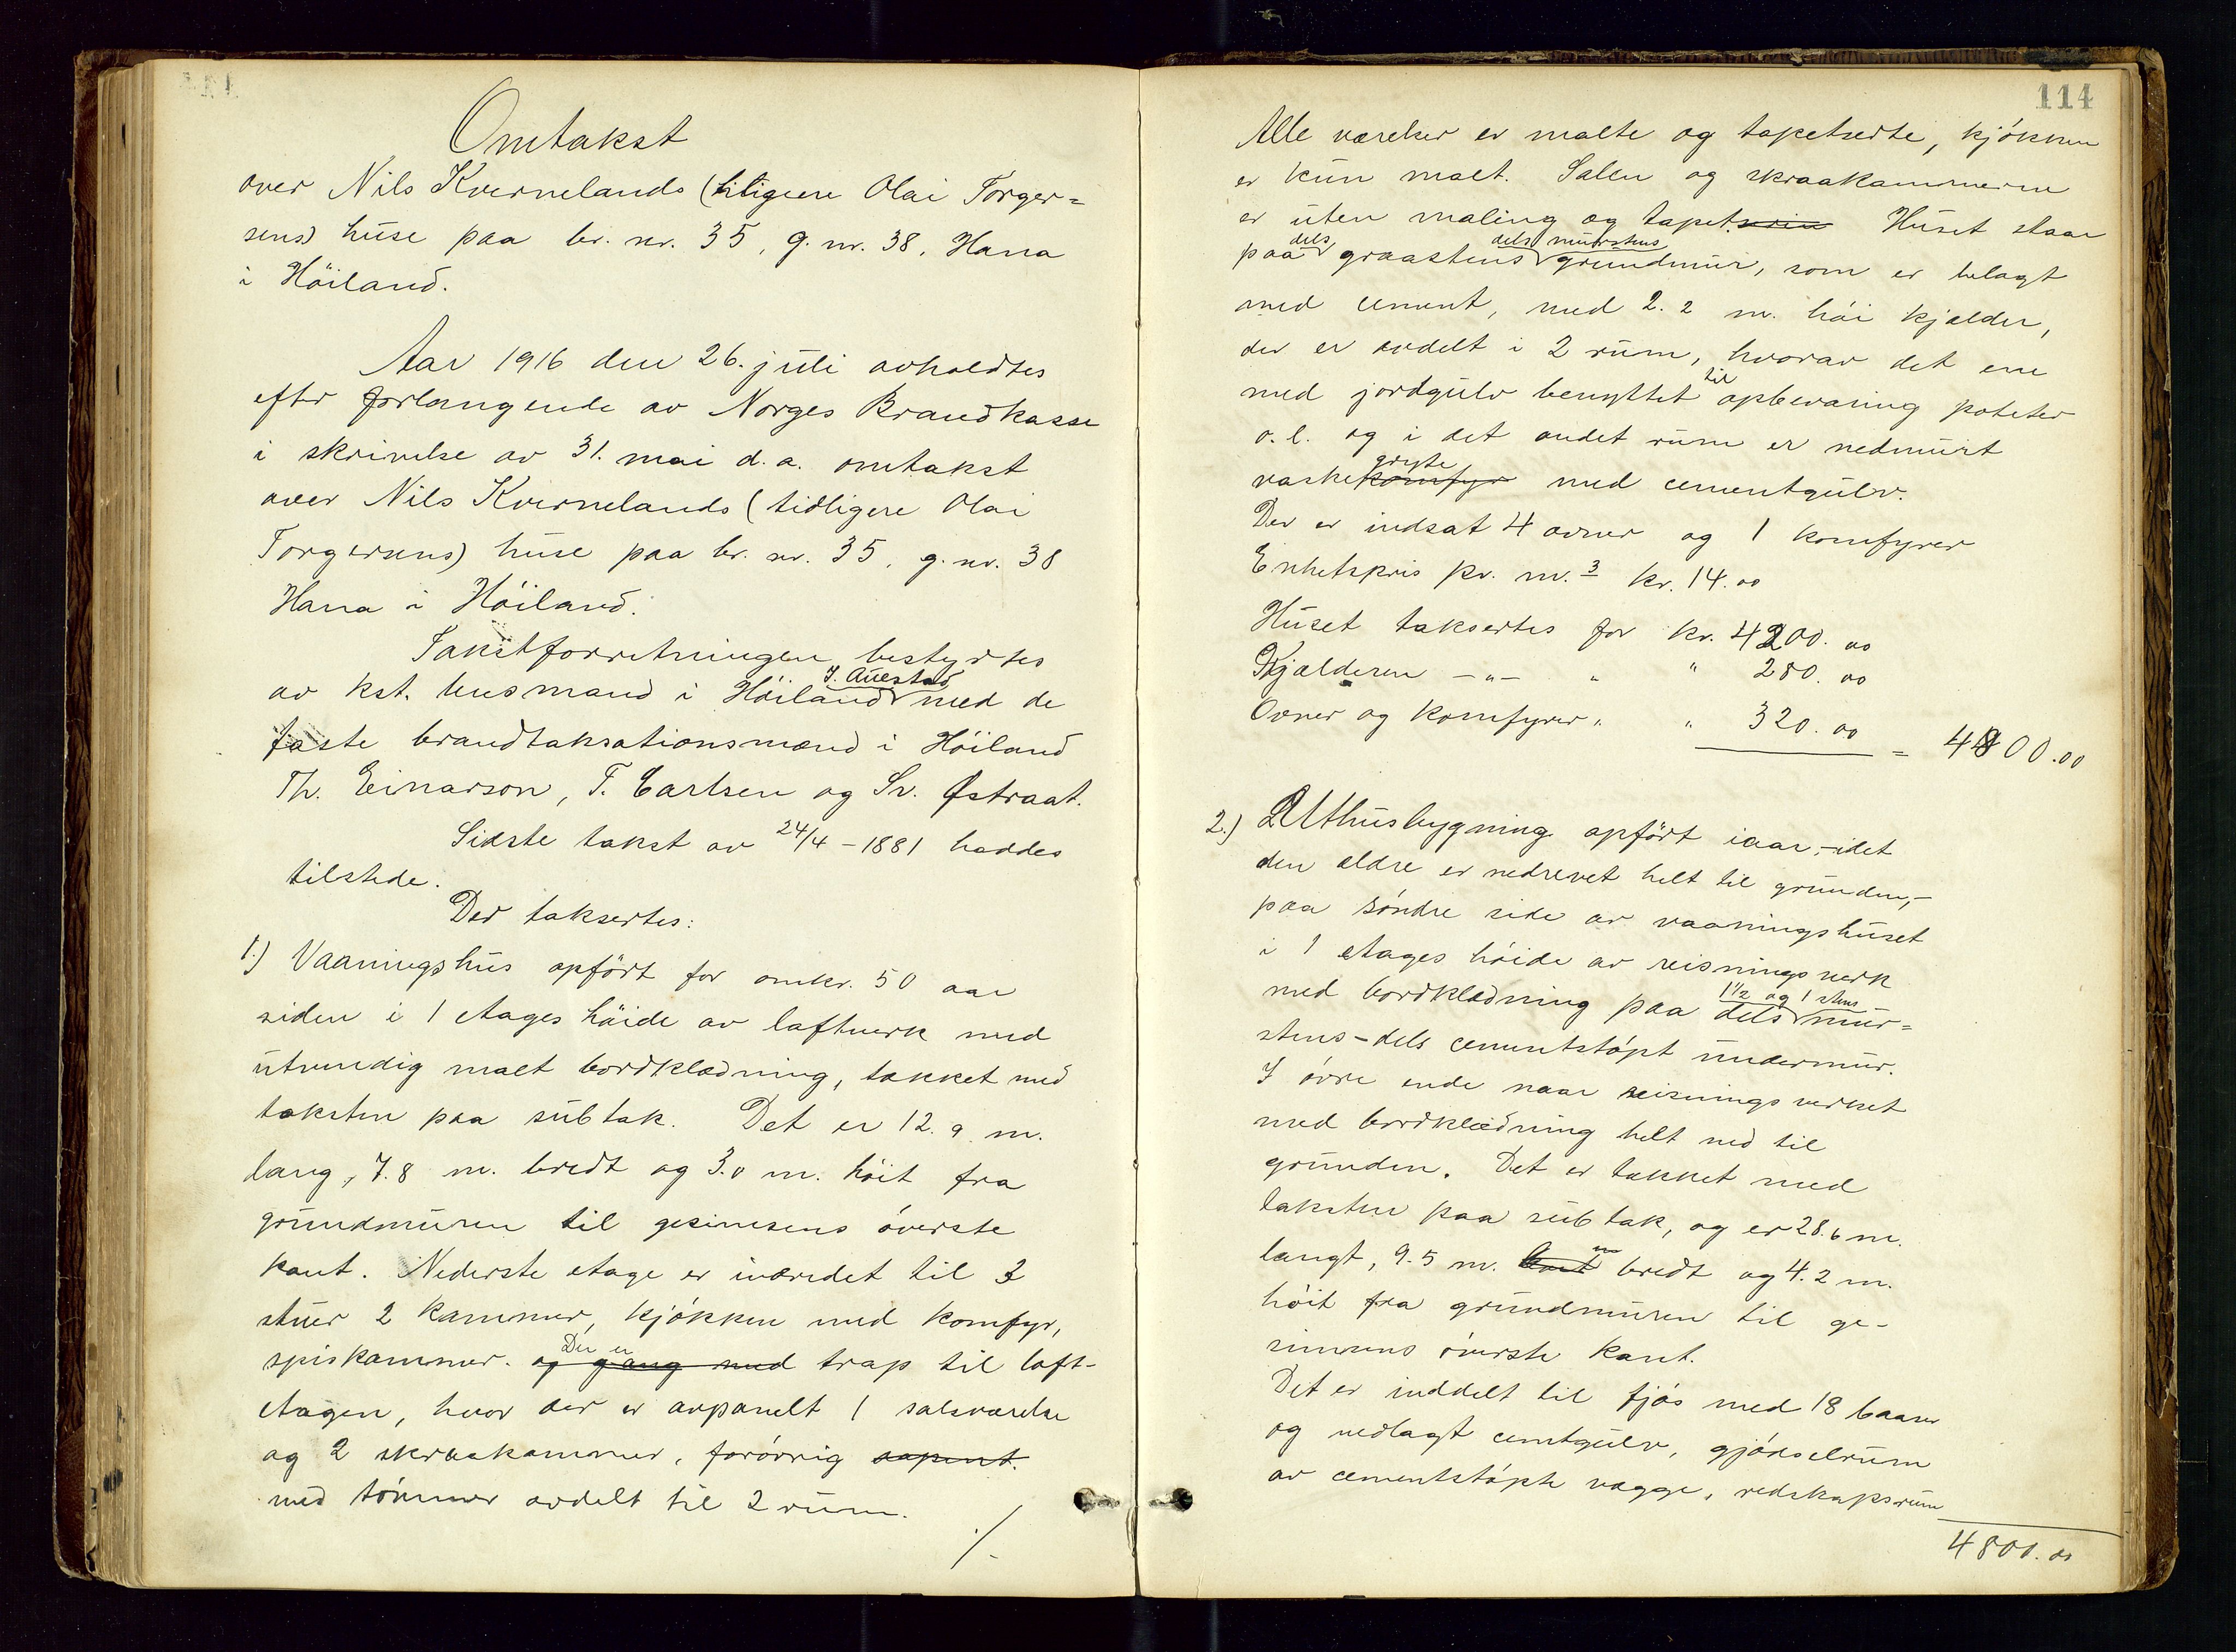 Omtakst
over Nils Kvernelands (tiligere Olai Torger=
sens) huse paa br. nr. 35, g. nr. 38, Hana
i Höiland.
Aar 1916 den 26. juli avholdtes
efter forlangende av Norges Brandkasse
i skrivelse av 31. mai d. a. omtakst
over Nils Kvernelands (tidligere Olai
Torgersens) huse paa br. nr. 35, g. nr. 38
Hana i Höiland.
Takstforretningen bestyrtes
av kst. lensmand i Höiland J. Auestad med de
faste brandtaksationsmænd i Höiland
Th. Einarson, T. Carlsen og Sv. Østraat.
Sidste takst av 24/4 - 1881 haddes
tilstede.
Der taksertes:
1.) Vaaningshus opfört for omkr. 50 aar
siden i 1 etages höide av laftverk med
utvendig malt bordklædning, tækket med
taksten paa subtak. Det er 12.9 m.
lang, 7.8 m. bredt og 3.0 m. höit fra
grundmuren til gesimsens överste
kant. Nederste etage er indredet til 3
stuer 2 kammer, kjökken med komfyr,
spiskammer. og gang med Der er trap til loft-
etagen, hvor der er avpanelt 1 salsværelse
og 2 skraakammer, forövrig aapent.
med tömmer avdelt til 2 rum.
./.
114
Alle værelser er malte og tapetserte, kjökken
er kun malt. Salen og skraakammerne
er uten maling og tapet. Huset staar
paa dels graastens dels murstens grundmur, som er belagt
med cement, med 2.2 m. höi kjælder,
der er avdelt i 2 rum, hvorav det ene
med jordgulv benyttet til opbevaring poteter
o. l. og i det andet rum er nedmurt
vaskekomfyr gryte med cementgulv.
Der er indsat 4 ovner og 1 komfyrer
Enhetspris pr. m.3 kr. 14.00
Huset taksertes for kr. 4200.00
Kjælderen -"- " " 280.00
Ovner og komfyrer " " 320.00 = 4800.00
2.) Uthusbygning opfört iaar, - idet
den ældre er nedrevet helt til grunden, -
paa söndre side av vaaningshuset
i 1 etages höide av reisningsverk
med bordklædning paa dels 1 1/2 og 1 stens mur=
stens - dels cementstöpt undermur.
I övre ende naar reisningsverket
med bordklædning helt ned til
grunden. Det er tækket med
taksten paa subtak, og er 28.6 m.
langt, 9.5 m. bredt og 4.2 m.
höit fra grundmuren til ge-
simsens överste kant.
Det er inddelt til fjös med 18 baaser
og nedlagt cemtgulv, gjödselrum
av cementstöpte vægge, redskapsrum
4800.00